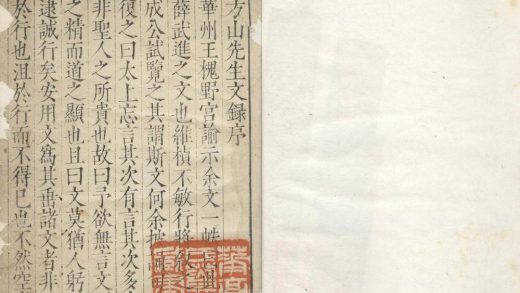 方山先生文録序
華州王槐野宮諭示余文一帙
薛武進之文也維楨不敏行將
成公試覽之其謂斯文何余披誦
復之曰太上忘言其次有言其次多
非聖人之所貴也故曰予欲無言文
之精而道之顯也且曰文莫猶人躬
逮誠行矣安用文爲其垂諸文者非
於行也沮於行而不得已也不然空